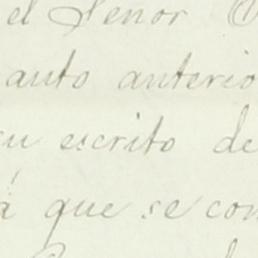 el Señor
auto anterio
su escrito de
á que se con